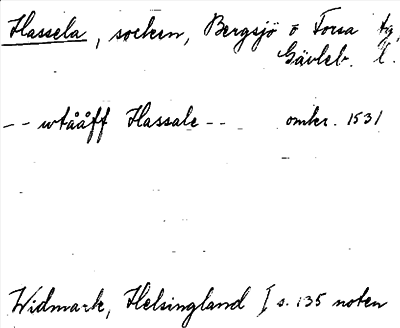 Hassela, socken, Bergsjö o Forsa tg,
Gävleb. l.
-- wtååff Hassale -- omkr. 1531
Widmark, Helsingland I s. 135 noten